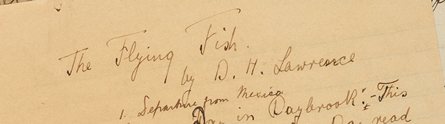 The Flying Fish.
by D. H. Lawrence
1. Departure from Mexico
Day in Daybrook:- This
Day read